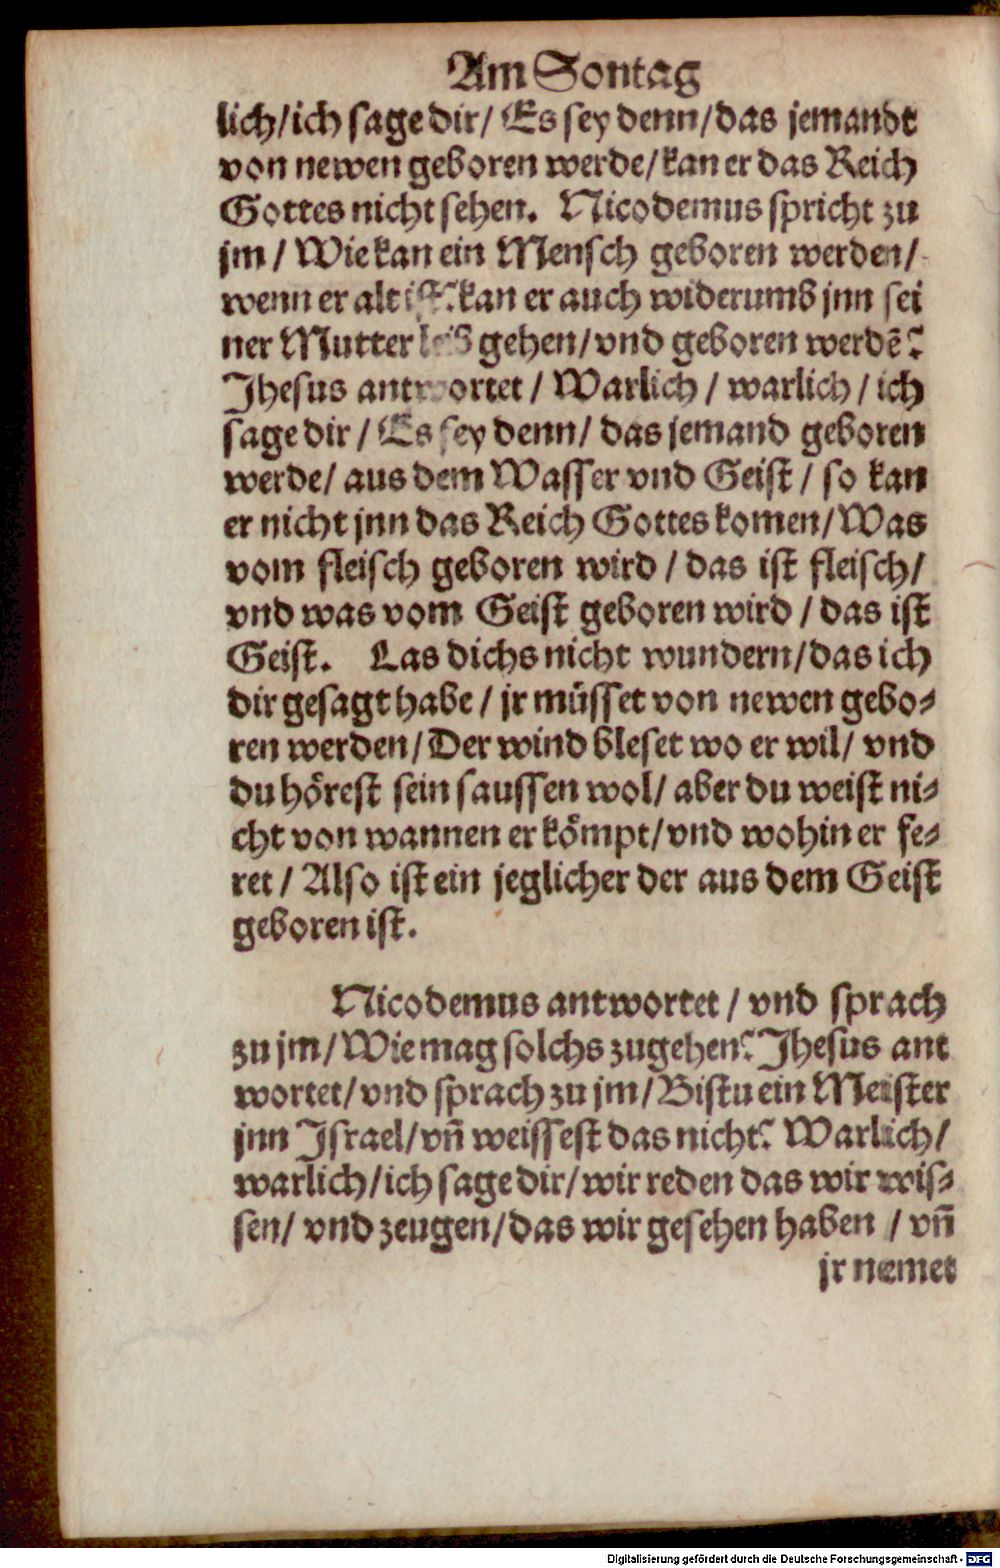 Am Sontag
lich/ich sage dir/ Es sey denn/das jemandt
von newen geboren werde/kan er das Reich
Gottes nicht sehen. Nicodemus spricht zu
jm / Wie kan ein Mensch geboren werden/
wenn er alt ist?kan er auch widerumb jnn sei
ner Mutter leib gehen/vnd geboren werdē?
Jhesus antwortet / Warlich / warlich / ich
sage dir / Es sey denn/ das jemand geboren
werde/ aus dem Wasser vnd Geist / so kan
er nicht jnn das Reich Gottes komen/Was
vom fleisch geboren wird / das ist fleisch/
vnd was vom Geist geboren wird / das ist
Geist. Las dichs nicht wundern/das ich
dir gesagt habe / jr müsset von newen gebo-
ren werden/Der wind bleset wo er wil/ vnd
du hörest sein saussen wol/ aber du weist ni-
cht von wannen er kömpt/vnd wohin er fe-
ret / Also ist ein jeglicher der aus dem Geist
geboren ist.
Nicodemus antwortet / vnd sprach
zu jm/Wie mag solchs zugehen?Jhesus ant
wortet/vnd sprach zu jm/Bistu ein Meister
jnn Jsrael/vn̄ weissest das nicht? Warlich/
warlich/ich sage dir/wir reden das wir wis-
sen/ vnd zeugen/das wir gesehen haben / vn̄
jr nemet
Digitalisierung gefördert durch die Deutsche Forschungsgemeinschaft - DFG